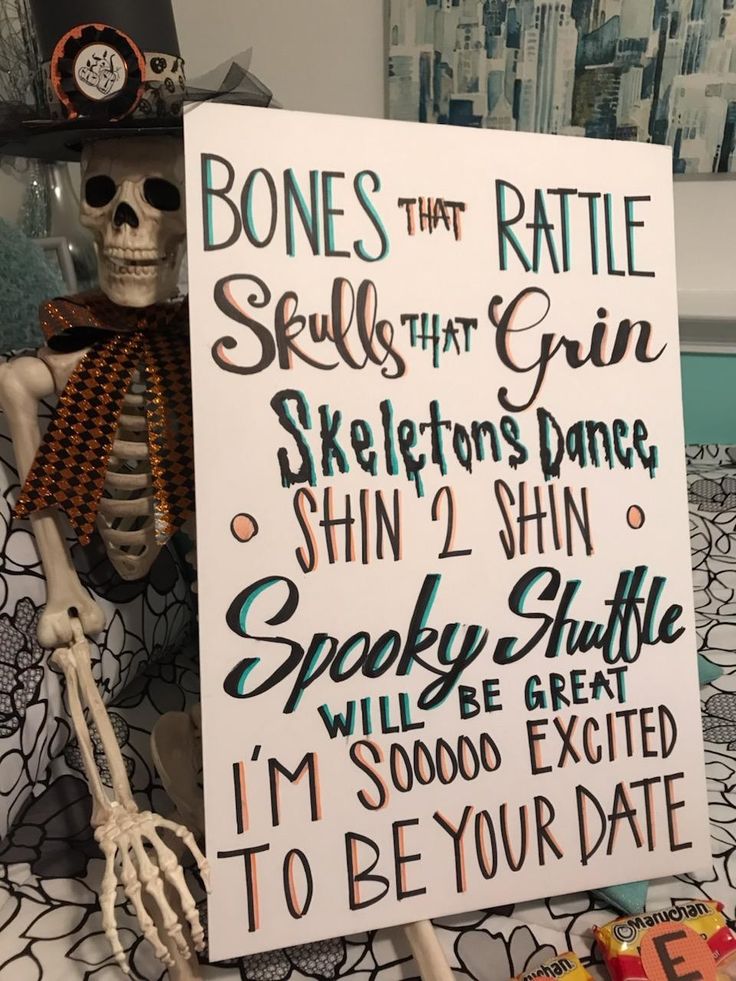 BONES THAT RATTLE
Skulls THAT Grin
Skeletons Dance
• SHIN 2 SHIN •
Spooky Shuttle
WILL BE GREAT
I'M SOOOOO EXCITED
TO BE YOUR DATE
Maruchan
E
Maruchan